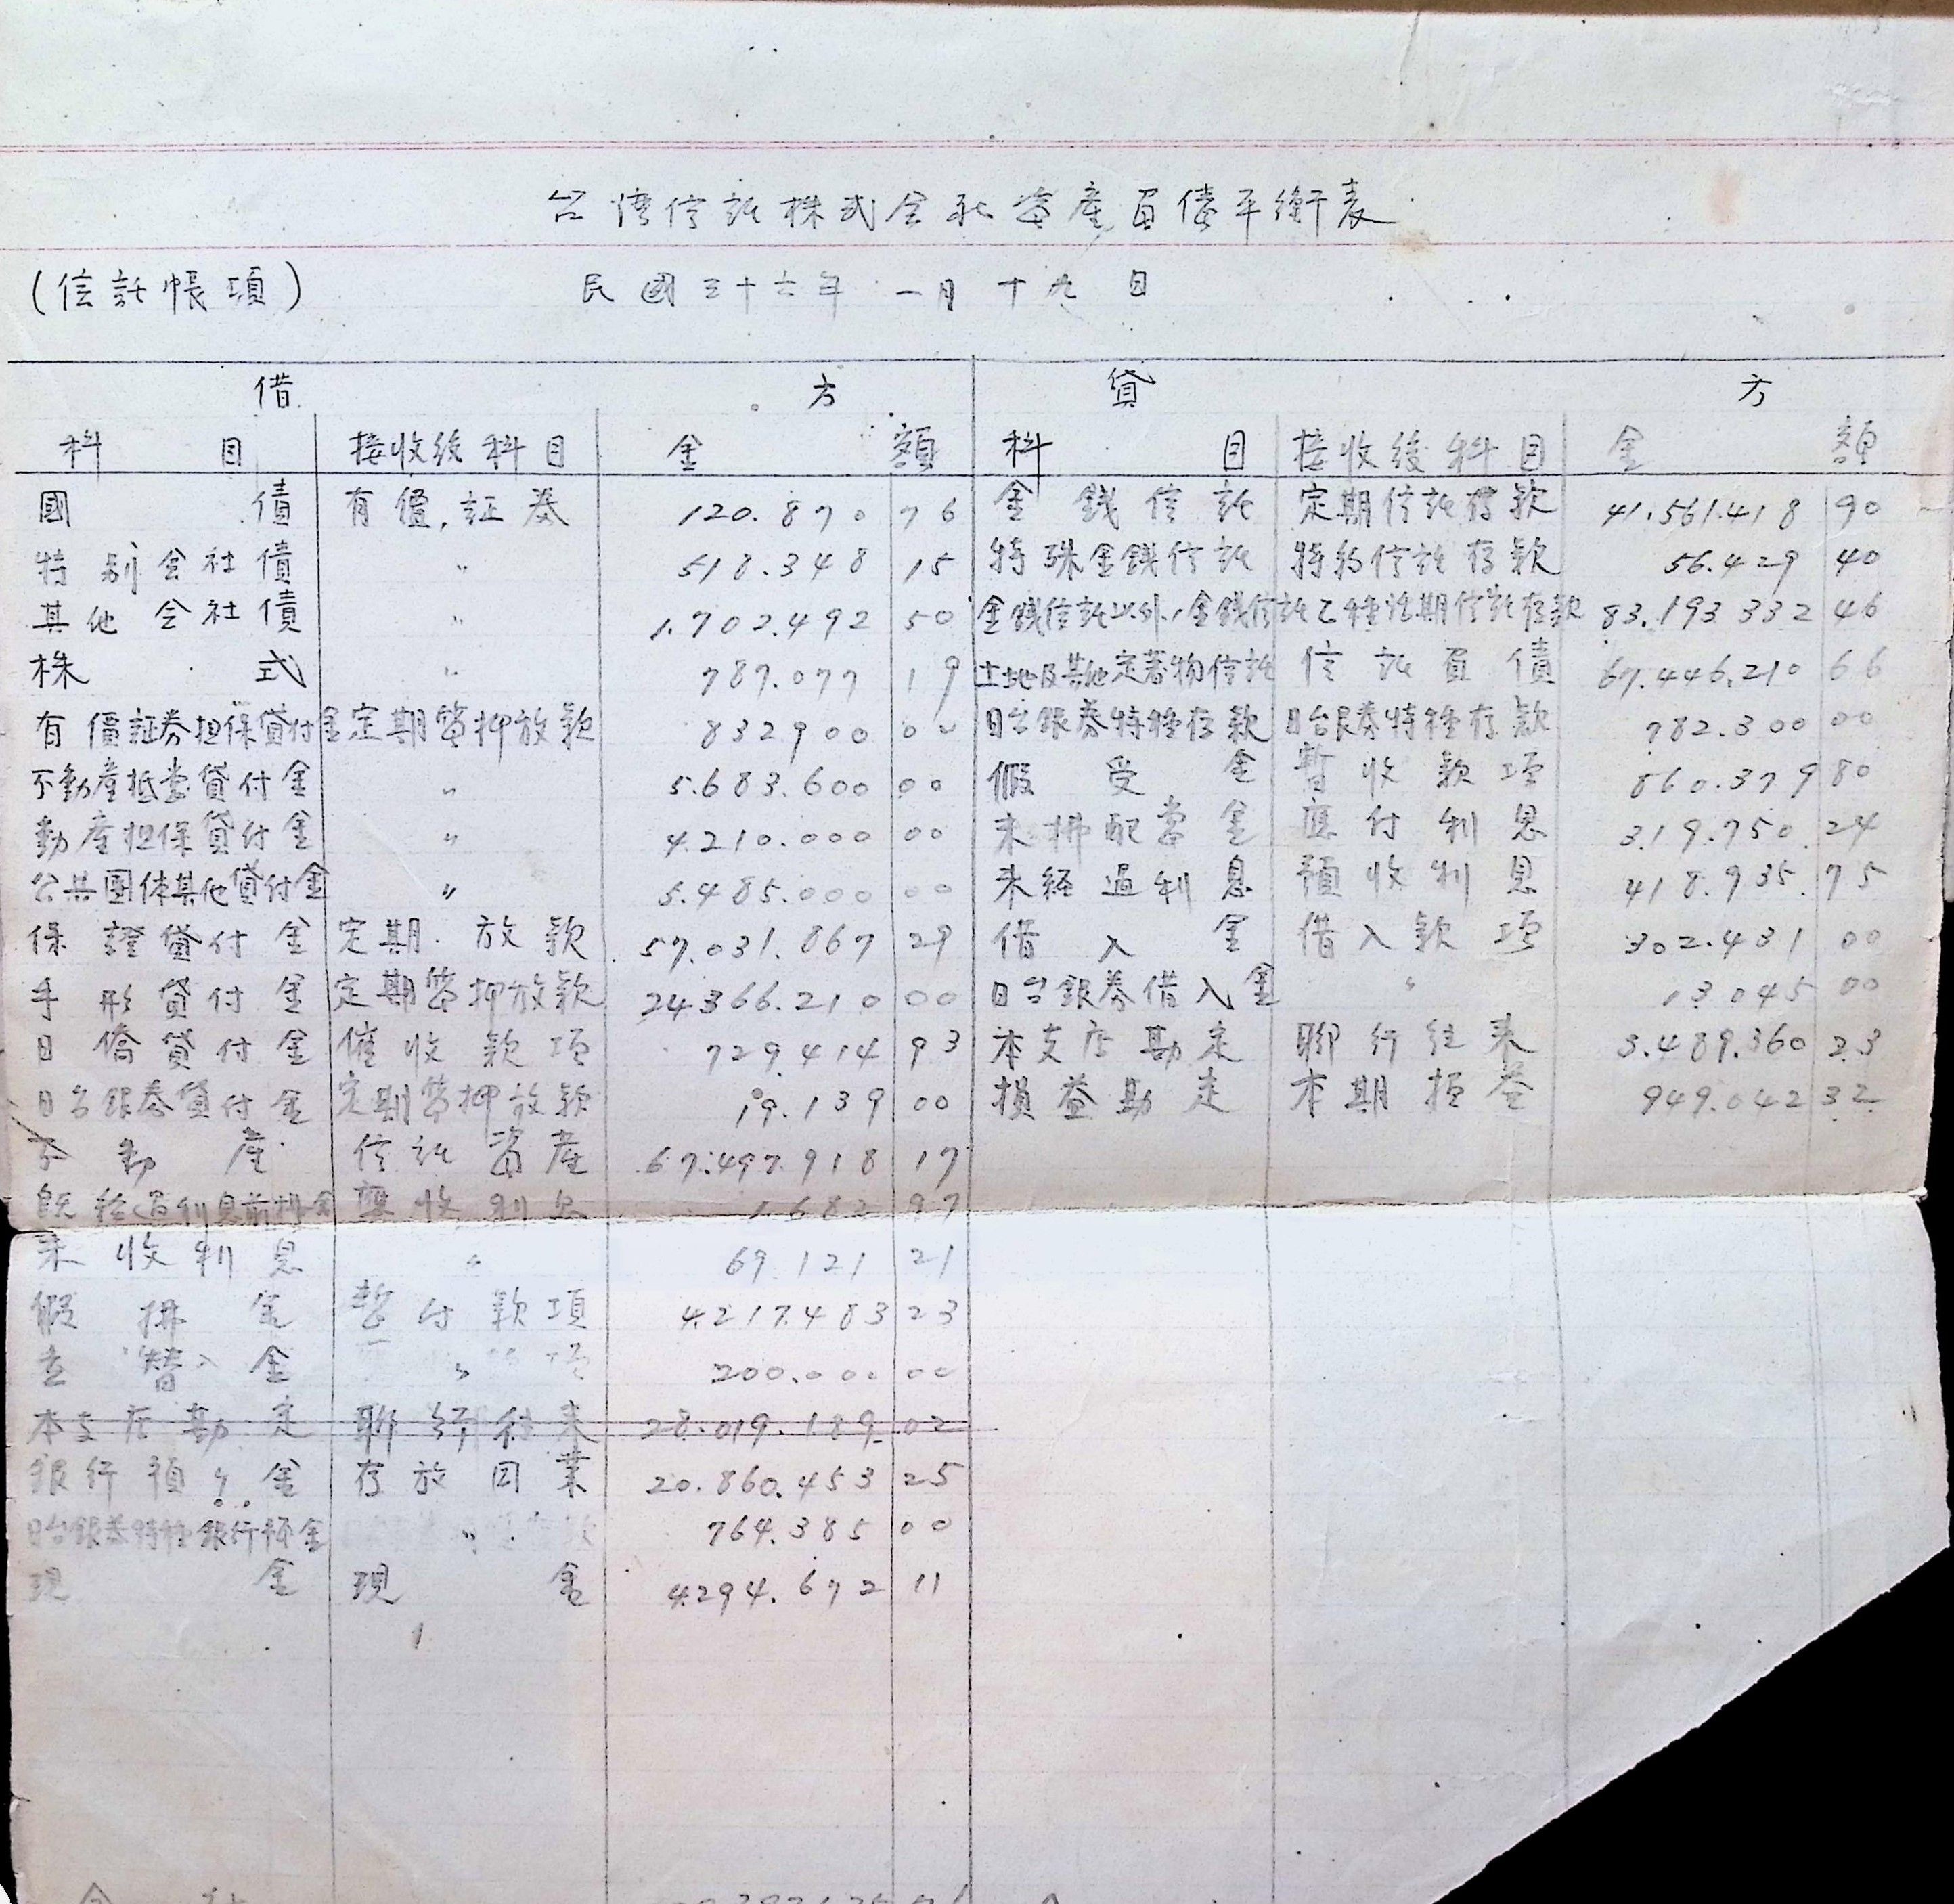 台湾信託株式会社資產負債平衡表
(信託帳項) 民國三十六年一月十九日
借 方 貸 方
科 目 接收後科目 金 額 科 目 接收後科目 金 額
國 債 有價証券 120.870 76 金錢信託 定期信託存款 41.561.418 90
特別会社債 〃 518.348 15 特殊金錢信託 特約信託存款 56.429 40
其他会社債 〃 1.702.492 50 金錢信託以外ノ金錢信託 乙種活期信託存款 83.193.332 46
株 式 〃 787.077 19 土地及其他定著物信託 信託負債 67.446.210 66
有價証券担保貸付金 定期質押放款 832900 00 日台銀券特種存款 日台銀券特種存款 782.300 00
不動産抵當貸付金 〃 5.683.600 00 假受金 暫收款項 860.379 80
動産担保貸付金 〃 4.210.000 00 未拂配當金 應付利息 319.750 24
公共團体其他貸付金 〃 5.485.000 00 未経過利息 預收利息 418.935 75
保證貸付金 定期放款 57.031.867 29 借入金 借入款項 302.431 00
手形貸付金 定期質押放款 24.366.210 00 日台銀券借入金 〃 13.045 00
日僑貸付金 催收款項 729.414 93 本支店勘定 聯行往来 3.489.360 23
日台銀券貸付金 定期質押放款 19.139 00 損益勘定 本期損益 949.042 32
不動産 信託資産 67.497.918 17
既経過利息前拂金 應收利息 1.682 97
未收利息 〃 69.121 21
假拂金 暫付款項 4.217.483 23
立替金 〃 200.000 00
本支店勘定 聯行往来 28.019.189.02
銀行預ヶ金 存放同業 20.860.453 25
日台銀券特種銀行預金 〃 764.385 00
現 金 現 金 4.294.672 11